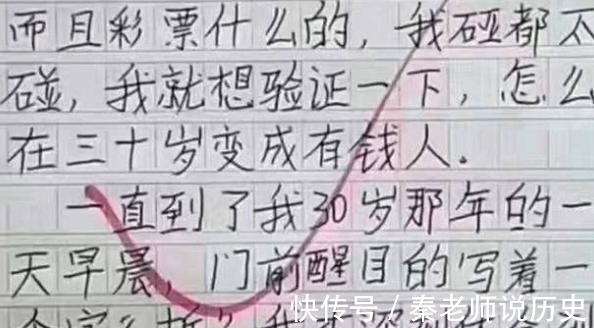 而且彩票什么的，我碰都不
碰，我就想验证一下，怎么
在三十岁变成有钱人.
一直到了我30岁那年的一
天早晨，门前醒目的写着一
个字“拆”我
快传号 / 秦老师说历史